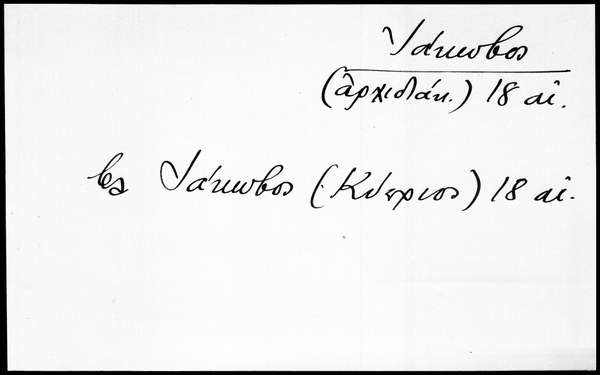 Ἰάκωβος
(ἀρχιδιάκ.) 18 αἰ.
βλ Ἰάκωβος (Κύπριος) 18 αἰ.